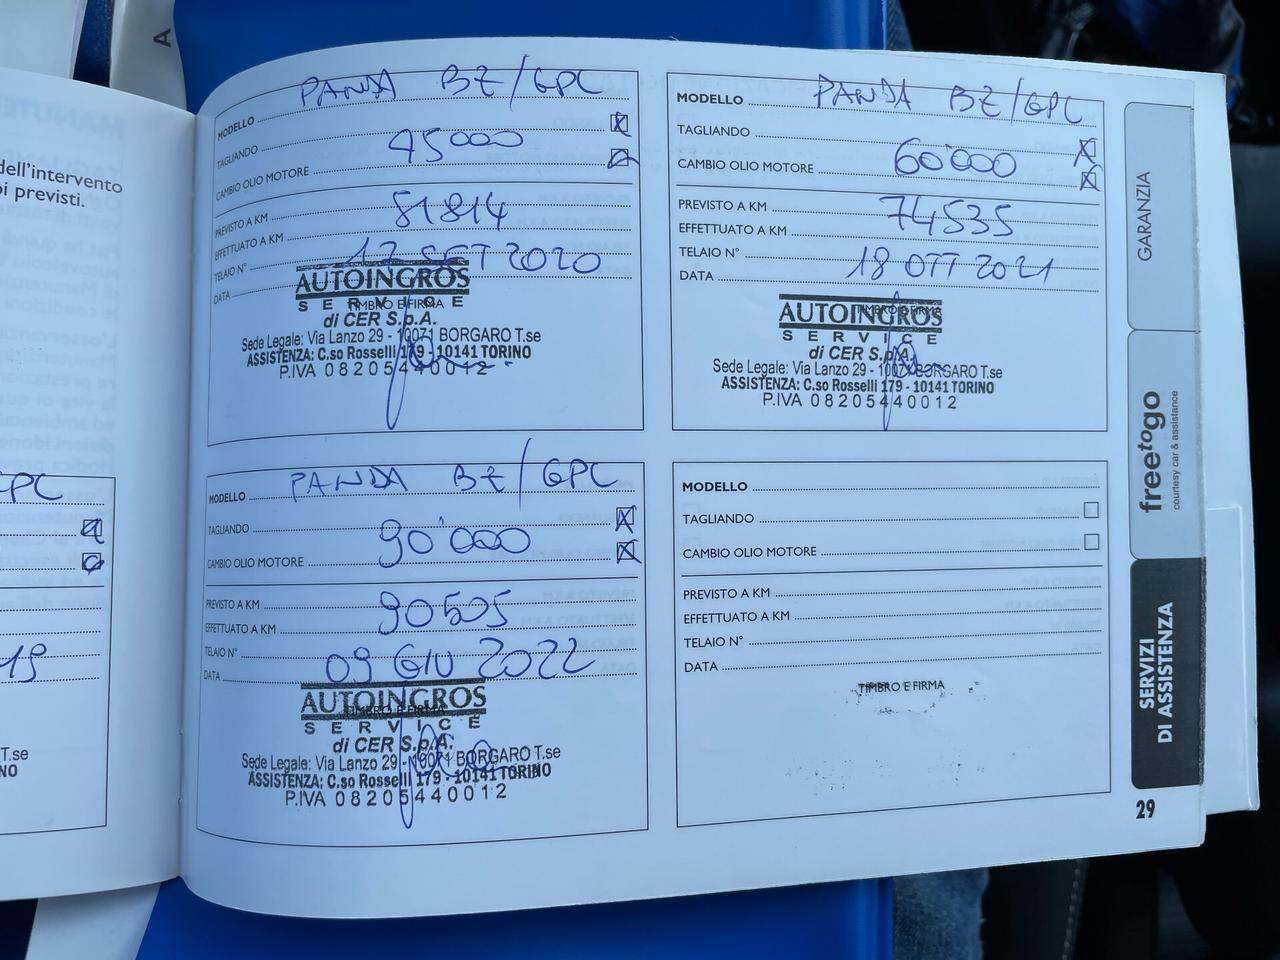 A
MANUTE
dell'intervento
i previsti.
GPL
19
T.se
NO
PANDA BZ/GPL
MODELLO
TAGLIANDO
45000
CAMBIO OLIO MOTORE
PREVISTO A KM
51814
EFFETTUATO A KM
TELAIO N°
17 SET 2020
DATA
TIMBRO E FIRMA
AUTOINGROS
SERVICE
di CER S.p.A.
Sede Legale: Via Lanzo 29 - 10071 BORGARO T.se
ASSISTENZA: C.so Rosselli 179 - 10141 TORINO
P.IVA 08205440012
MODELLO PANDA BZ/GPL
TAGLIANDO
CAMBIO OLIO MOTORE 60'000
PREVISTO A KM
EFFETTUATO A KM 74535
TELAIO N°
DATA 18 OTT 2021
TIMBRO E FIRMA
AUTOINGROS
SERVICE
di CER S.p.A.
Sede Legale: Via Lanzo 29 - 10071 BORGARO T.se
ASSISTENZA: C.so Rosselli 179 - 10141 TORINO
P.IVA 08205440012
MODELLO PANDA BZ/GPL
TAGLIANDO
CAMBIO OLIO MOTORE 90'000
PREVISTO A KM
EFFETTUATO A KM 90505
TELAIO N°
DATA 09 GIU 2022
TIMBRO E FIRMA
AUTOINGROS
SERVICE
di CER S.p.A.
Sede Legale: Via Lanzo 29 - 10071 BORGARO T.se
ASSISTENZA: C.so Rosselli 179 - 10141 TORINO
P.IVA 08205440012
MODELLO
TAGLIANDO
CAMBIO OLIO MOTORE
PREVISTO A KM
EFFETTUATO A KM
TELAIO N°
DATA
TIMBRO E FIRMA
GARANZIA
freetogo
courtesy car & assistance
SERVIZI
DI ASSISTENZA
29